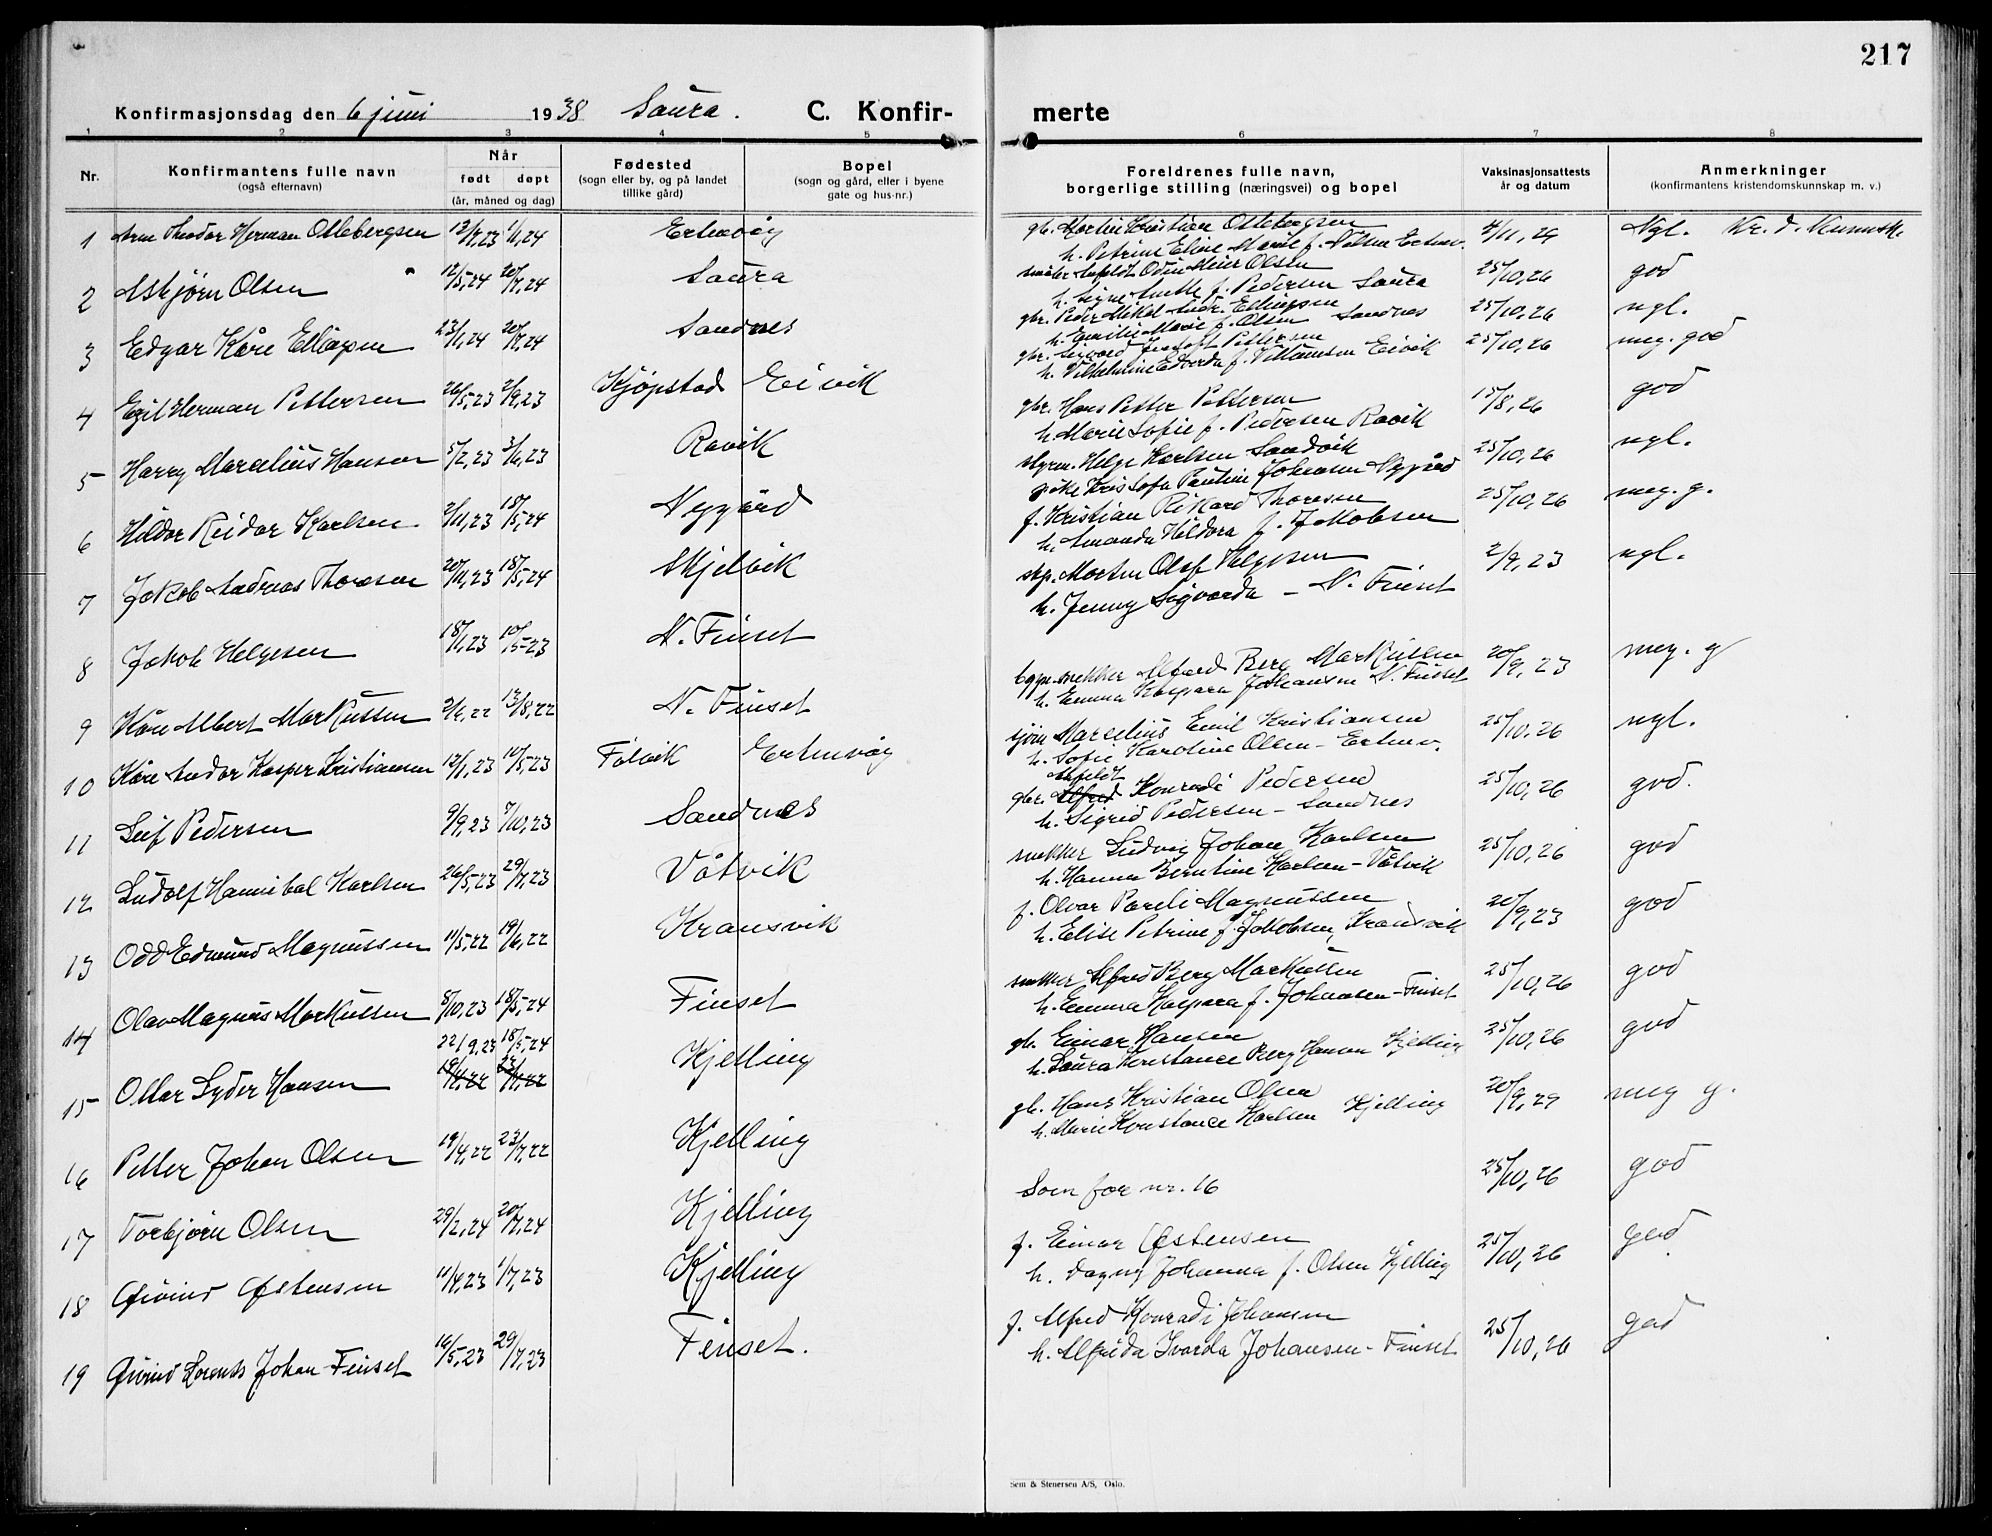 217
Konfirmasjonsdag den 6 juni 1938 Saura. C. Konfir-
merte
1 2 3 4 5 6 7 8
Nr. Konfirmantens fulle navn (også efternavn) Når født døpt (år, måned og dag) Fødested (sogn eller by, og på landet tillike gård) Bopel (sogn og gård, eller i byene gate og hus-nr.)
Foreldrenes fulle navn, borgerlige stilling (næringsvei) og bopel Vaksinasjonsattests år og datum Anmerkninger (konfirmantens kristendomskunnskap m. v.)
1 Arne Theodor Herman Ottebergsen 1/1,24 Ertenvåg
gb. Martin Kristian Ottebergsen 4/11,29 Ngl. Kr. d. Kunnsk.
h. Petrine Eline Marie f. Nilsen Ertenv.
2 Asbjørn Olsen 12/5,24 20/7,24 Saura
Odin Meier Olsen 25/10,26 god
h. Signe Anette f. Pedersen Saura
3 Edgar Kåre Ellingsen 23/1,24 20/7,24 Sandnes
gbr. Peder Mikal Andr. Ellingsen 25/10,26 ngl.
h. Emilie Marie f. Olsen Sandnes
4 Egil Herman Pettersen 26/5,23 2/9,23 Kjøpstad Eivik
gbr. Sigvard Pettersen 25/10,26 meg. god
h. Vilhelmine Edvarda f. Villumsen Eivik
5 Harry Marcelius Hansen 5/2,23 3/6,23 Ravik
gbr. Hans Petter Pettersen 15/8,26 god
h. Marie Sofie f. Pedersen Ravik
6 Hildor Reidar Karlsen 2/11,23 18/5,24 Nygård
styrm. Helge Karlsen Sandvik 25/10,26 ngl.
pike Kristofa Pauline Johansen Nygård
7 Jakob Andreas Thoresen 20/11,23 18/5,24 Skjelvik
f. Kristian Rikard Thoresen 25/10,26 meg. g.
h. Amanda Hildora f. Jakobsen
8 Jakob Helgesen 18/1,23 10/5-23 N. Finset
skp. Morten Olaf Helgesen 2/9,23 ngl.
h. Jenny Sigvarda – N. Finset
9 Kåre Albert Markussen 2/4,22 13/8,22 N. Finset
bygn.snekker Alfred Berg Markussen 20/9,23 meg. g
h. Emma Kaspara Johansen N. Finset
10 Kåre Andor Kasper Kristiansen 12/1,23 10/5,23 Følvik Ertenvåg
sjøm Marcelius Emil Kristiansen 25/10,26 ngl.
h. Sofie Karoline Olsen – Ertenv.
11 Leif Pedersen 9/9,23 7/10,23 Sandnes
Anfeldt
gbr. Alfred Konradi Pedersen 25/10,26 god.
h. Sigrid Pedersen – Sandnes
12 Ludolf Hannibal Karlsen 26/5,23 29/7,23 Våtvik
snekker Ludvig Johan Karlsen 25/10,26 god
h. Hanna Berntine Karlsen – Våtvik
13 Odd Edmund Magnussen 11/5,22 19/6,22 Kransvik
f. Olvar Pareli Magnussen 20/9,23 god
h. Elise Petrine f. Jakobsen, Kransvik
14 Olav Magnus Markussen 8/10,23 18/5,24 Finset
snekker Alfred Berg Markussen 25/10,26 god
h. Emma Kaspara f. Johansen – Finset
22/9,23 18/5,24
15 Ottar Lyder Hansen 19/4,22 23/7,22 Kjelling
gb. Einar Hansen 25/10,26 god
h. Laura Konstance Berg Hansen Kjelling
16 Petter Johan Olsen 19/4,22 23/7,22 Kjelling
gb. Hans Kristian Olsen 20/9,29 meg g.
h. Marie Konstance Karlsen Kjelling
17 Torbjørn Olsen 29/2,24 20/7,24 Kjelling
Som for nr. 16 25/10,26 god
18 Øivind Østensen 11/4,23 1/7,23 Kjelling
f. Einar Østensen 25/10,26 god
h. Dagny Johanna f. Olsen Kjelling
19 Øivind Lorents Johan Finset 16/5,23 29/7,23 Finset.
f. Alfred Konradi Johansen 25/10,26 god
h. Alfrida Ivarda Johansen – Finset
Sem & Stenersen A/S, Oslo.